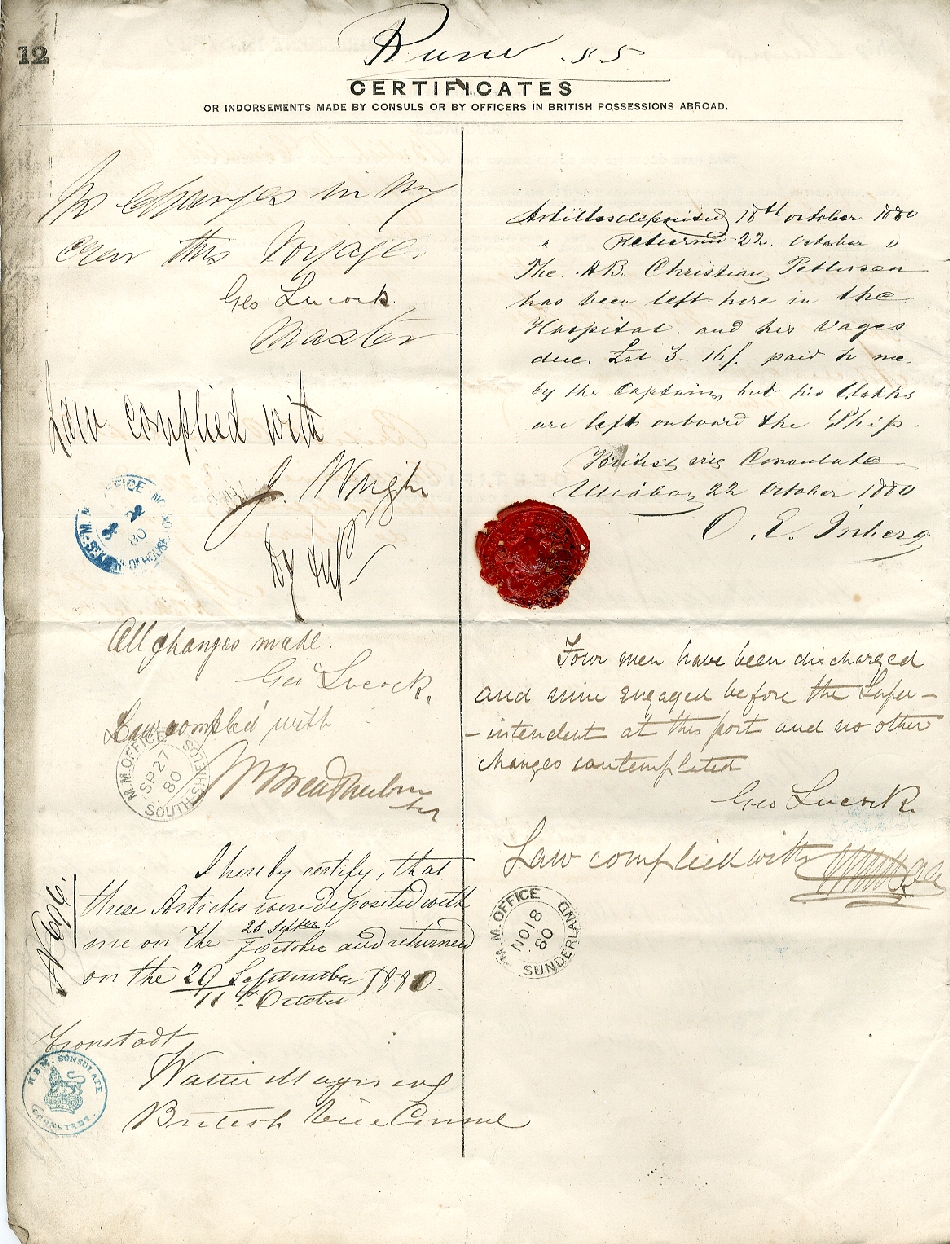 12
55
CERTIFICATES
OR INDORSEMENTS MADE BY CONSULS OR BY OFFICERS IN BRITISH POSSESSIONS ABROAD.
No Changes in my
Crew this Voyage.
Geo Lucock
Master
Law complied with
J. Wright
All changes made.
Geo Lucock.
Law complied with
M.M. OFFICE
SP 27
80
SOUTH SHIELDS
I hereby certify, that
these Articles were deposited with
me on the
7 October and returned
on the 29 September 1880.
11 October
Cronstadt
H.B.M. CONSULATE
CRONSTADT
British Vice Consul
Articles deposited 18th October 1880
" Returned 22. October "
The A.B. Christian Petterson
has been left here in the
Hospital and his Wages
due. 3. paid to me
by the Captain, but his
are left onboard the Ship.
British Consulate
22 October 1880
Four men have been discharged
and nine engaged before the Super-
-intendent at this port and no other
changes contemplated
Geo Lucock
Law complied with
M.M. OFFICE
NO 18
80
SUNDERLAND